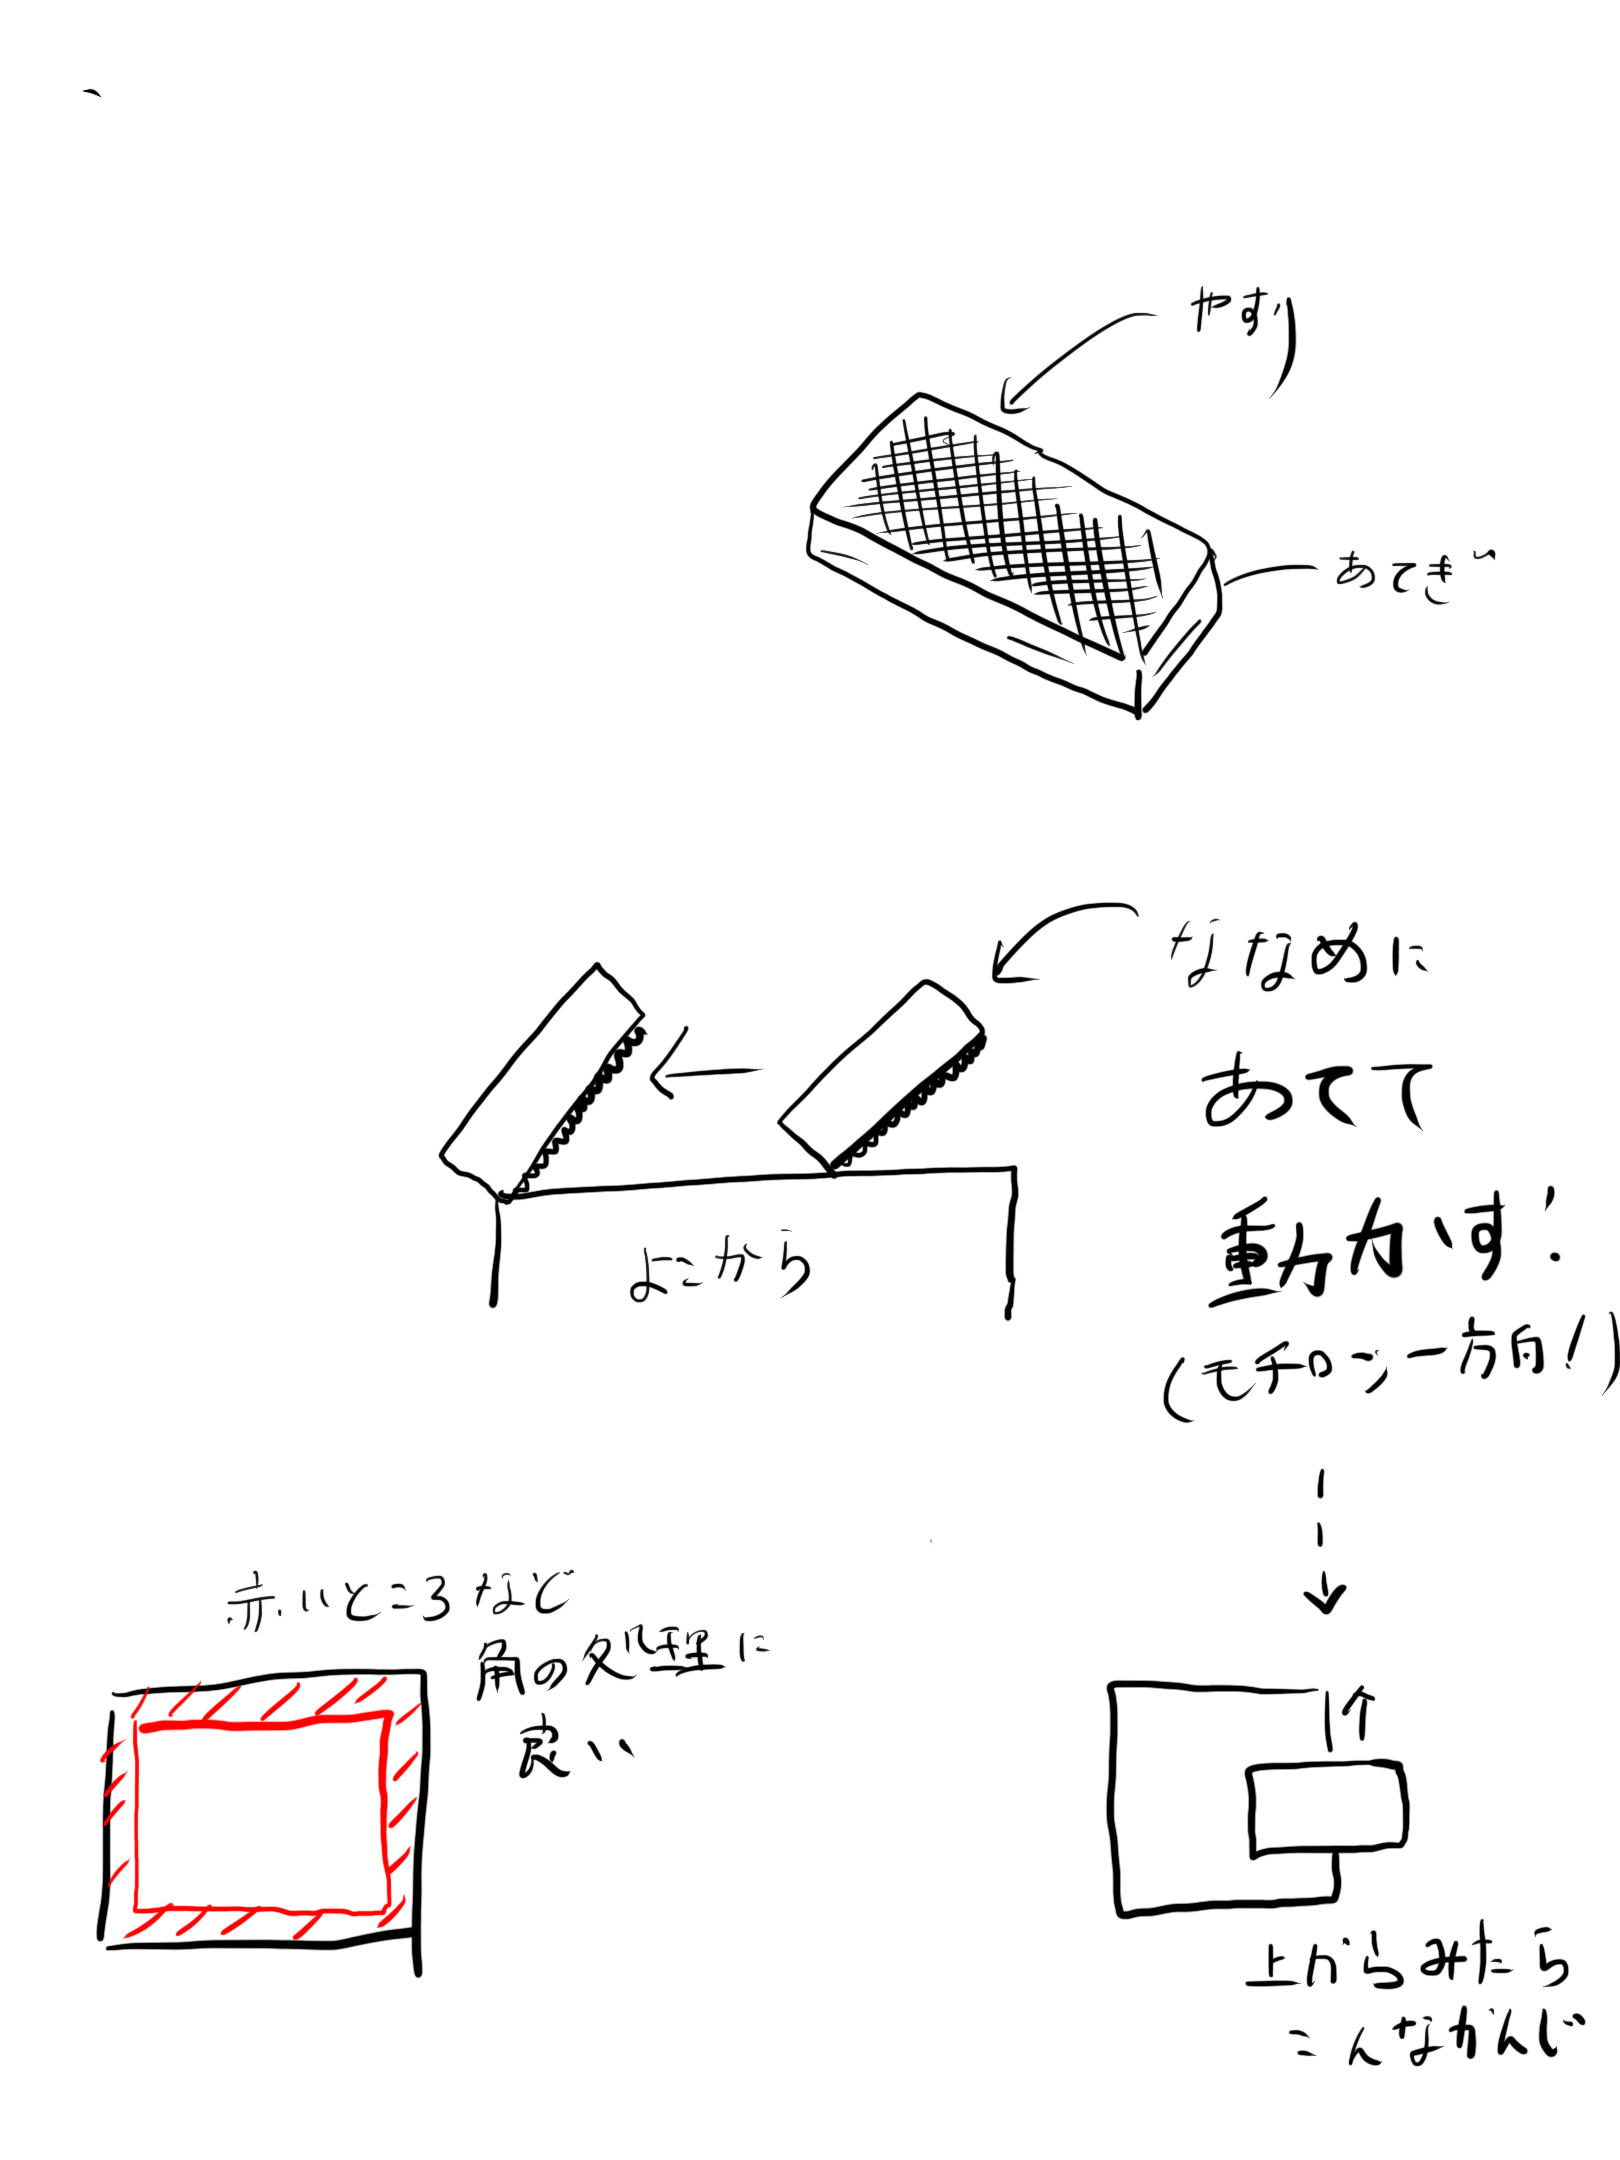 やすり
あてぎ
ななめに
あてて
動かす!
(モチロン一方向!)
よこから
赤いところなど
角の処理に
良い
上からみたら
こんなかんじ